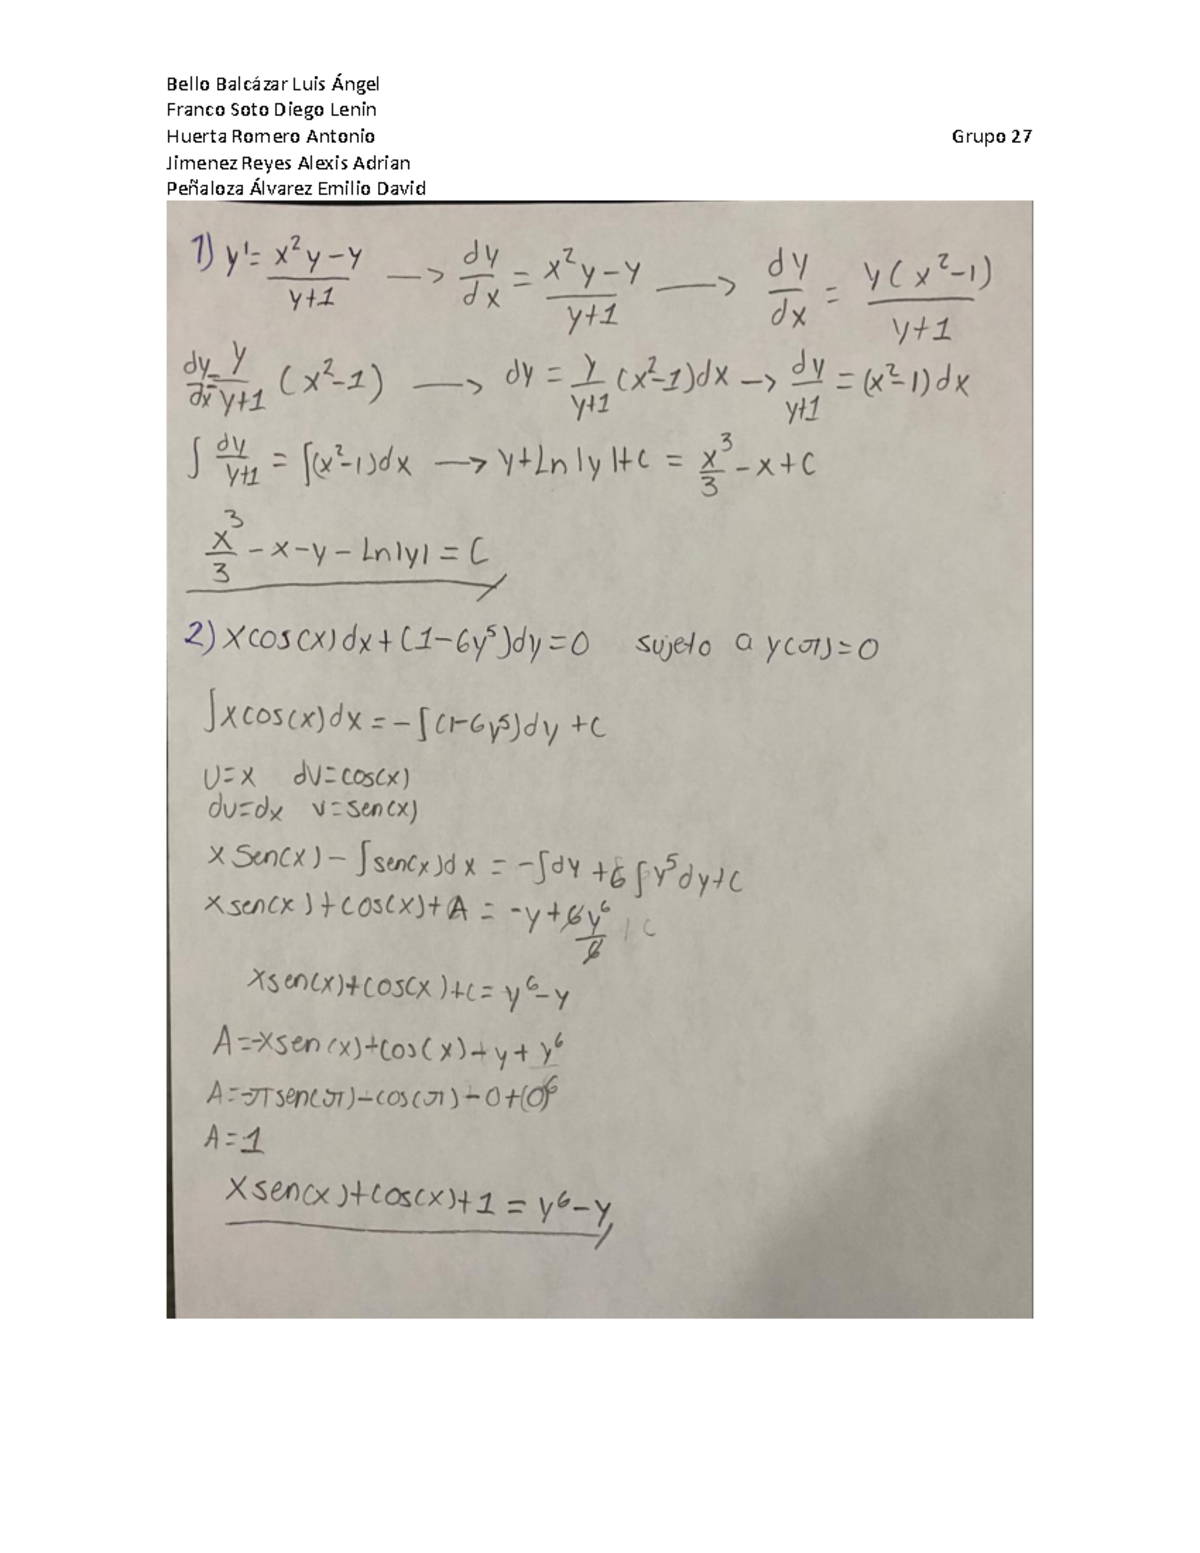 Bello Balcázar Luis Ángel
Franco Soto Diego Lenin
Huerta Romero Antonio
Grupo 27
Jimenez Reyes Alexis Adrian
Peñaloza Álvarez Emilio David
1) y' = (x²y-y)/(y+1) —> dy/dx = (x²y-y)/(y+1) —> dy/dx = y(x²-1)/(y+1)
dy/dx = y/(y+1) (x²-1) —> dy = y/(y+1) (x²-1)dx —> dy/(y+1) = (x²-1)dx
∫ dy/(y+1) = ∫(x²-1)dx —> y+Ln|y|+C = x³/3 - x + C
x³/3 - x - y - Ln|y| = C
2) xcos(x)dx+(1-6y⁵)dy=0 sujeto a y(π)=0
∫xcos(x)dx = -∫(1-6y⁵)dy + C
U=x dV=cos(x)
du=dx v=sen(x)
x Sen(x) - ∫sen(x)dx = -∫dy + 6∫y⁵dy+C
xsen(x)+cos(x)+A = -y+6y⁶/6 + C
xsen(x)+cos(x)+C = y⁶-y
A=-xsen(x)+cos(x)+y+y⁶
A=-πsen(π)-cos(π)-0+(0)⁶
A=1
xsen(x)+cos(x)+1 = y⁶-y